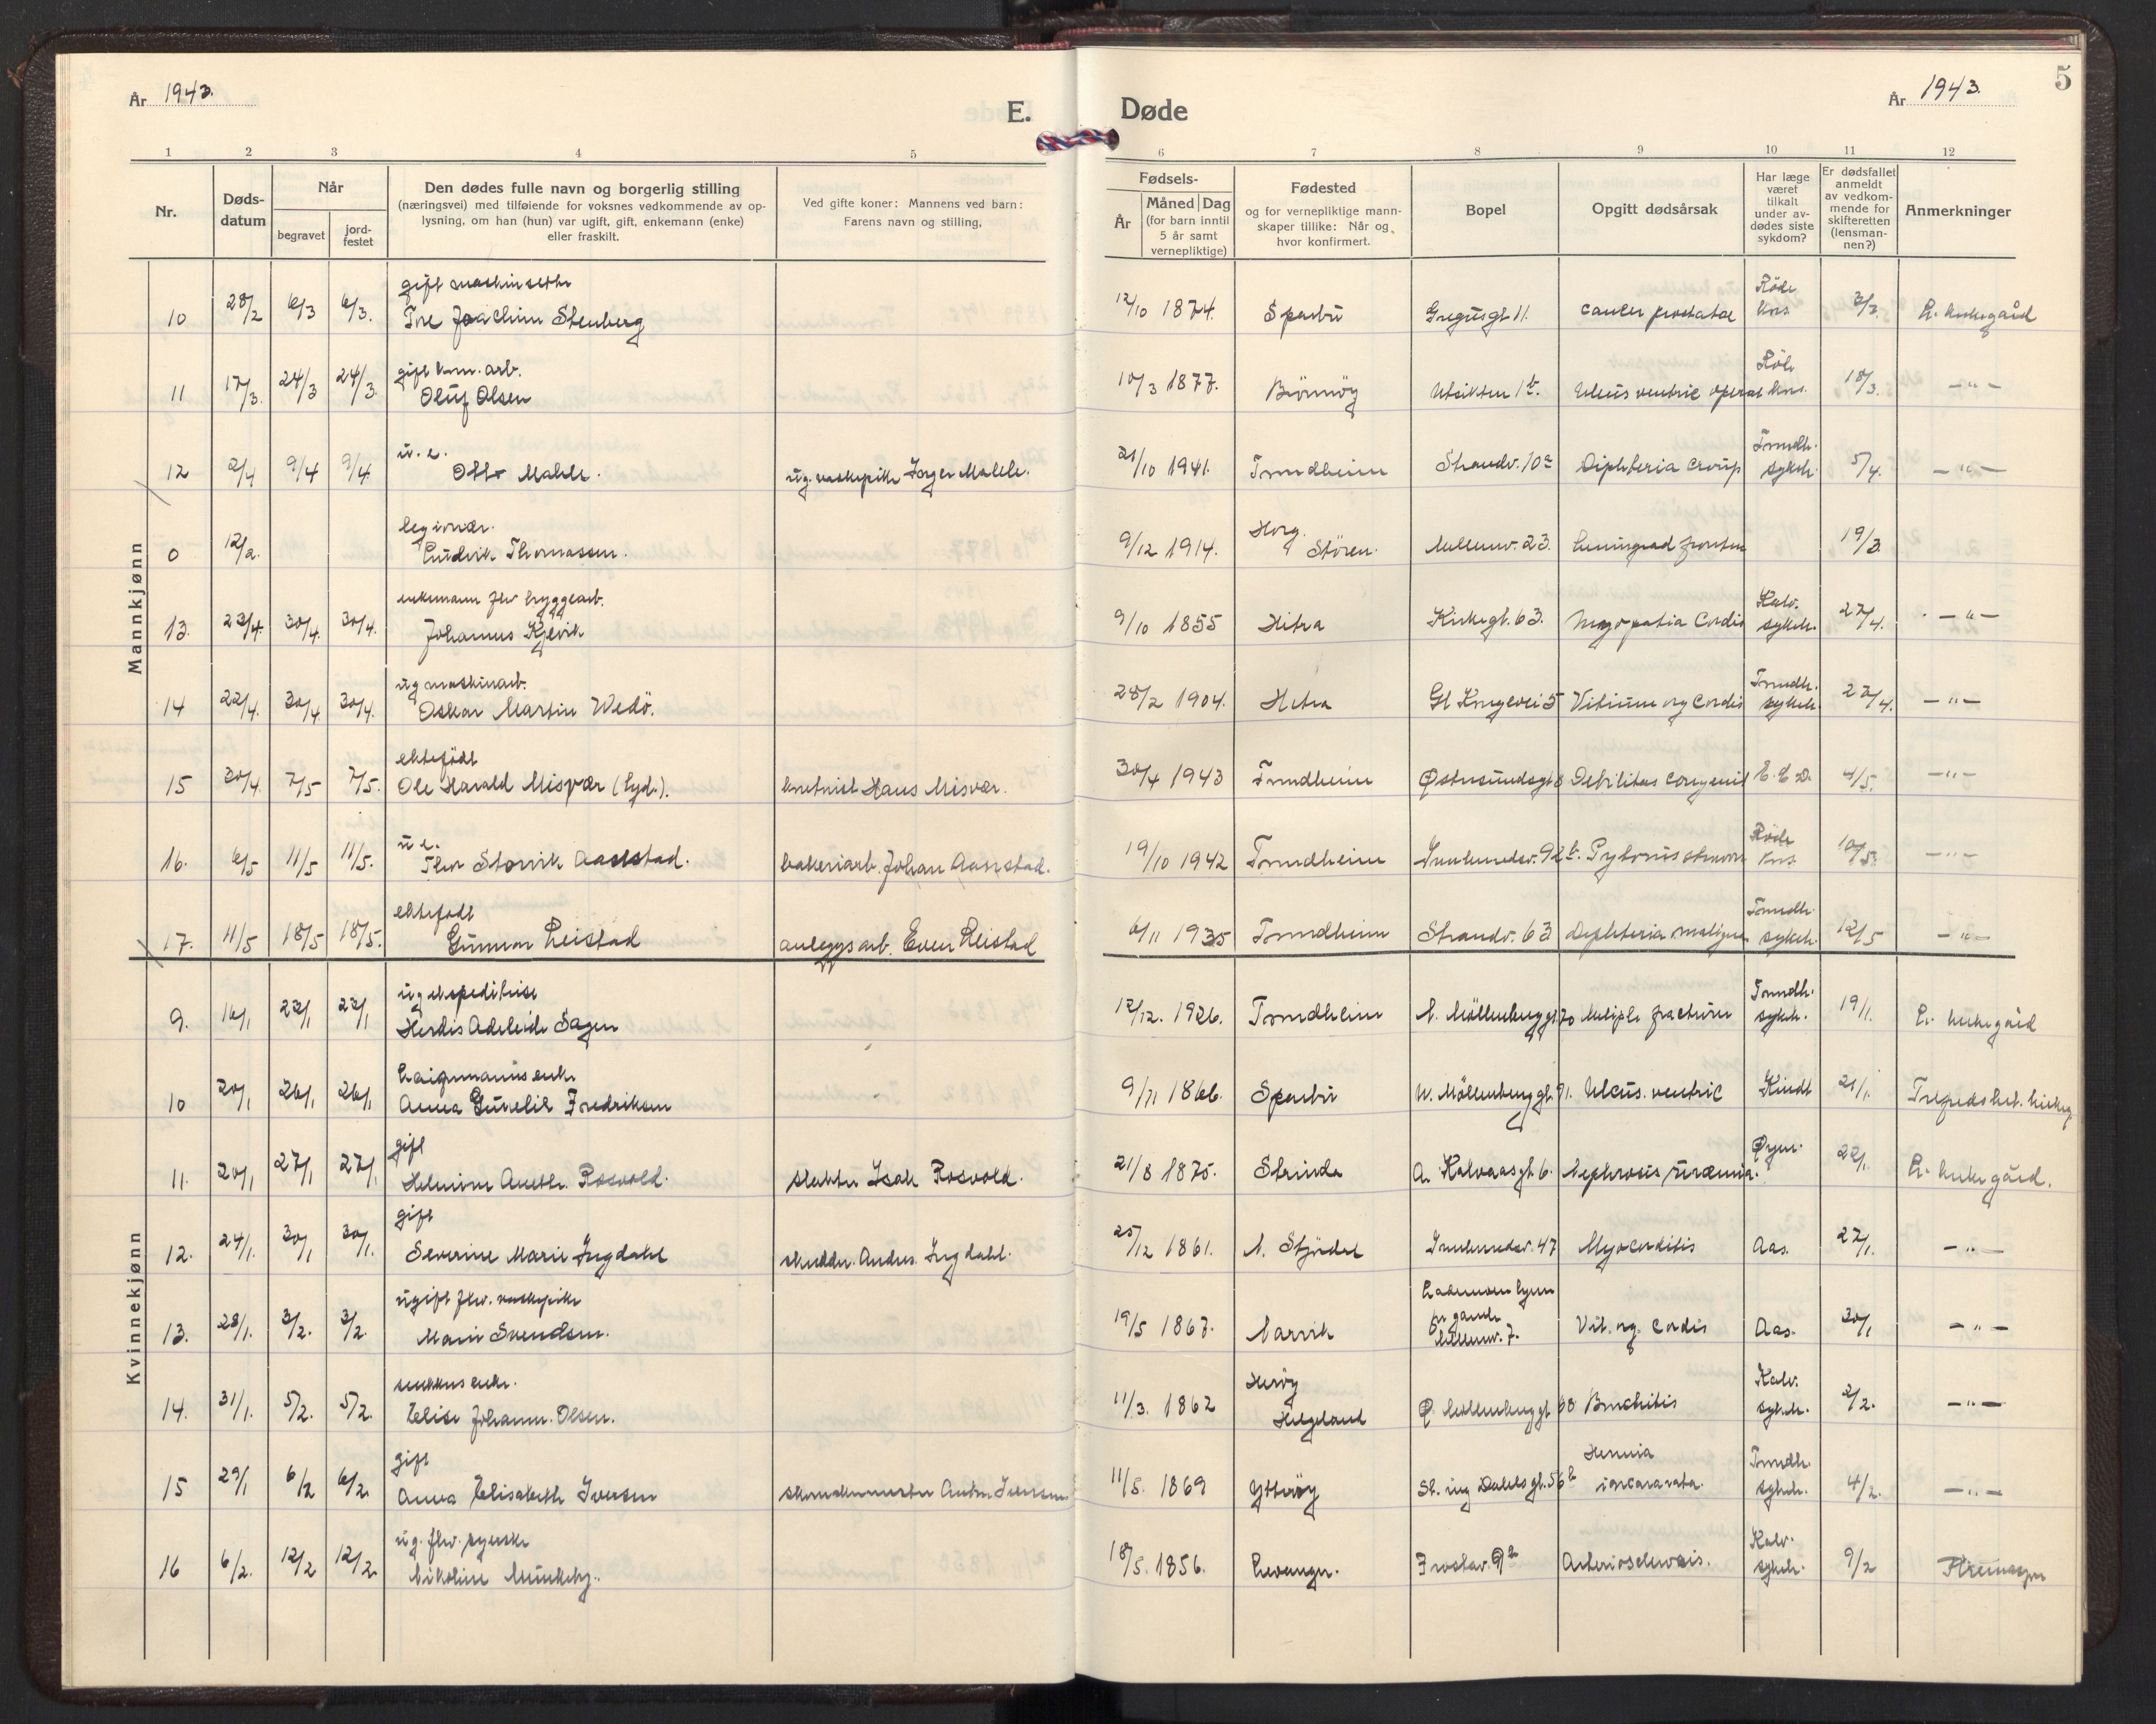 År 1943.
E.
Døde
År 1943.
5
1 2 3 4 5 6 7 8 9 10 11 12
Nr.
Døds-
datum
Når
begravet
jord-
festet
Den dødes fulle navn og borgerlig stilling
(næringsvei) med tilføiende for voksnes vedkommende av op-
lysning, om han (hun) var ugift, gift, enkemann (enke)
eller fraskilt.
Ved gifte koner: Mannens ved barn:
Farens navn og stilling.
Fødsels-
År
Måned Dag
(for barn inntil
5 år samt
vernepliktige)
Fødested
og for vernepliktige mann-
skaper tillike: Når og
hvor konfirmert.
Bopel
Opgitt dødsårsak
Har læge
været
tilkalt
under av-
dødes siste
sykdom?
Er dødsfallet
anmeldt
av vedkom-
mende for
skifteretten
(lensman-
nen?)
Anmerkninger
Mannkjønn
gift
10 28/2 6/3 6/3. Tore Joachim Stenberg 12/10 1874. Sparbu 11. cancer prostatae Röde Kors 3/3.
gift arb.
11 17/3. 24/3 24/3. Oluf Olsen 10/3 1877. Utsikten 1b. Ulcus ventric Röde Kors 18/3. —"—
u. e.
12 2/4 9/4 9/4. ug. vaskepike 21/10 1941. Trondheim Strandv. 10a Diphteria croup Trondh. sykeh. 5/4. —"—
legionær.
0 12/2. Ludvik Thomassen. 9/12 1914. Horg. Stören. 23. Leningrad fronten 19/3.
enkemann fhv bryggearb.
13. 23/4. 30/4. 30/4. Johannes Kjevik 9/10 1855 Hitra Kirkegt. 63. Myopatia Cordis Kalv. sykeh. 27/4. —"—
ug maskinarb.
14 22/4. 30/4 30/4. Oskar Martin Wedö. 28/2 1904. Hitra Gl Kongevei 5 Vitium org Cordis Trondh. sykeh. 27/4. —"—
ektefödt
15 30/4. 7/5 7/5. Ole Harald Misvær Hans Misvær. 30/4 1943 Trondheim Østersundsgt 8 Debilitas congenit E. C. D. 4/5. —"—
u e.
16. 6/5 11/5 11/5. Thor Storvik bakeriarb. Johan 19/10 1942 Trondheim Innherredsv. 92b. Röde Kors 10/5. —"—
ektefödt
17. 11/5 18/5 18/5. Gunnar Leistad anleggsarb. Even Leistad 6/11 1935 Trondheim Strandv. 63 Diphteria maligna Trondh. sykeh. 12/5 —"—
Kvinnekjønn
ug ekspeditrise
9. 16/1 23/1 23/1 Herdis Adeleide Sagen 12/12. 1926. Trondheim N. Möllenberggt. 70 Multiple fracturer Trondh. sykeh. 19/1. L. kirkegård
enke
10 20/1 26/1 26/1 Anna Fredriksen 9/11 1866. Sparbu N. Möllenberggt. 91. Ulcus. ventric Kindt 21/1.
gift
11. 20/1 27/1 27/1 Rosvold. slakter Isak Rosvold. 21/8 1875. Strinda A. Kalvaasgt. 6. Nephrosis uræmia. 22/1. L. kirkegård.
gift
12. 24/1. 30/1 30/1. Severine Marie Ingdahl skredder. Andr. Ingdahl. 25/12 1861. N. Stjördal Innherredsv. 47 Myocarditis Aas. 27/1. —"—
ugift fhv. vaskepike
13. 28/1. 3/2. 3/2. Marie Svendsen. 19/5 1867. Narvik 7. Vit. org. Cordis Aas. 30/1 —"—
enke.
14. 31/1. 5/2. 5/2. Elise Johanne Olsen. 11/3. 1862 Heröy Helgeland Ø Möllenberggt 68 Bronchitis Kalv. sykeh. 2/2. —"—
gift
15 29/1 6/2 6/2 Anna Elisabeth Iversen Anton Iversen 11/5. 1869 Ytteröy 56b Hernia incararata. Trondh. sykeh. 4/2. —"—
ug. fhv. syerske
16 6/2. 12/2 12/2 Nikoline Munkeby. 18/5. 1856. Levanger. Frostav. 9b Arteriosclerosis. Kalv. sykeh. 9/2